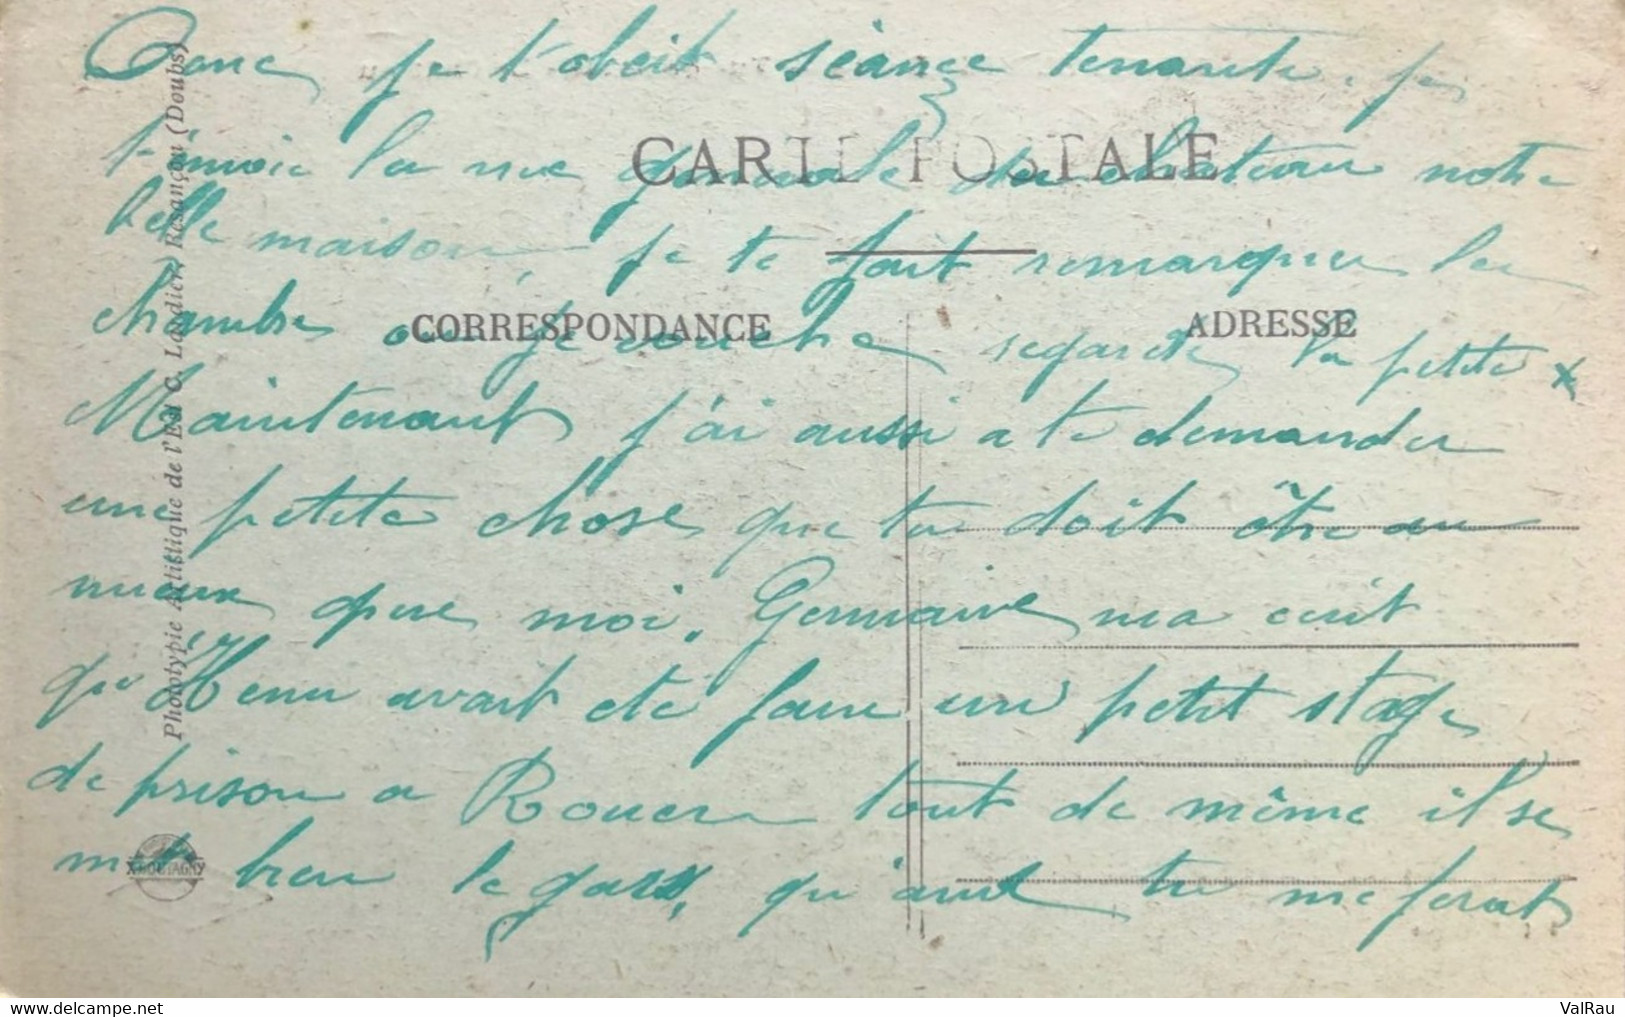 Donc je t'obeit séance tenante. je
t'envoie la vue generale du chateau notre
belle maison, je te fait remarquer la
chambre ou je couche regarde la petite x
Maintenant j'ai aussi a te demander
une petite chose que tu doit être au
mieux que moi. Germaine ma ecrit
qu'Henri avait eté faire un petit stage
de prison a Rouen tout de même il se
met bien le gars, qu'ant tu me ferat
CARTE POSTALE
CORRESPONDANCE
ADRESSE
Phototypie Artistique de l'Est C. Lardier, Besançon (Doubs)
ValRau